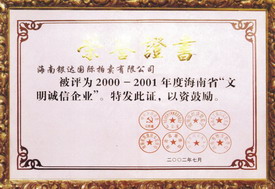 荣誉證書
海南银达国际拍卖有限公司
被评为2000－2001年度海南省“文
明诚信企业”。特发此证，以资鼓励。
二〇〇二年七月